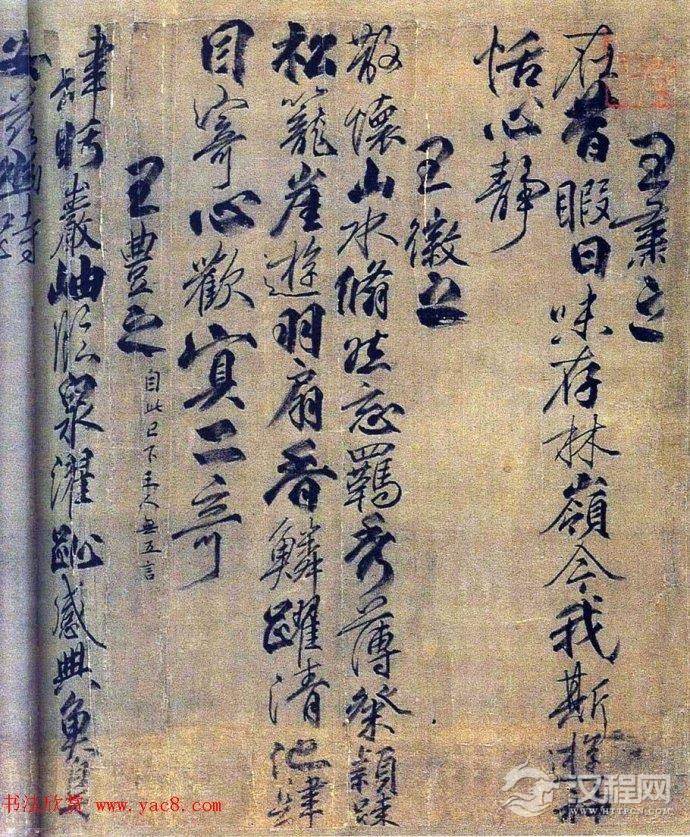 王肅之
在昔暇日味存林嶺今我斯遊神
恬心靜
王徽之
散懷山水翛然忘羈秀薄粲穎疎
松籠崖遊羽扇香鱗躍清池歸
目寄心歡冥二奇
王豐之
自此已下人無五言
肆盻巖岫臨泉濯趾感興魚鳥
安茲幽峙
书法欣赏 www.yac8.com
汉程网
HTTPCN.COM